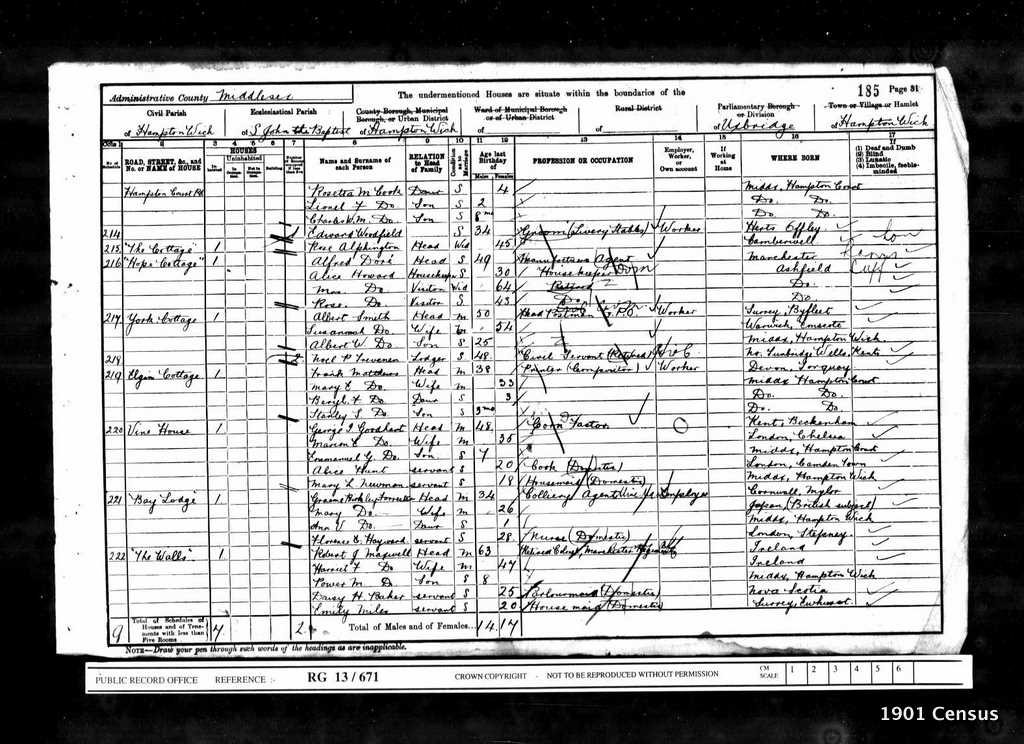 185 Page 31
Administrative County Middlesex
The undermentioned Houses are situate within the boundaries of the
Civil Parish
of Hampton Wick
Ecclesiastical Parish
of S. John the Baptist
County Borough, Municipal Borough, or Urban District
of Hampton Wick
Ward of Municipal Borough or of Urban District
of
Rural District
of
Parliamentary Borough or Division
of Uxbridge
Town or Village or Hamlet
of Hampton Wick
ROAD, STREET, &c., and No. or NAME of HOUSE
HOUSES
Uninhabited
Name and Surname of each Person
RELATION to Head of Family
Age last Birthday of
Males Females
PROFESSION OR OCCUPATION
Employer, Worker, or Own account
If Working at Home
WHERE BORN
If
(1) Deaf and Dumb
(2) Blind
(3) Lunatic
(4) Imbecile, feeble-minded
Hampton Court Rd Rosetta M. Cook Daur S 4 Midds, Hampton Court
Lionel F Do Son S 2 Do. Do.
Charles W. M. Do Son S 8 mo Do Do.
214 1 Edward Woodfield S 34 Groom (Livery Stables) Worker Herts Offley
215 "The Cottage" 1 Rose Alphington Head Wid 45 Camberwell
216 "Hope Cottage" 1 Alfred Head S 49 Agent Manchester
Alice Howard Housekeeper S 30 Housekeeper Dom Ashfield
Do Visitor Wid 64 Do.
Rose Do Visitor S 43 Do. Do
217 York Cottage 1 Albert Smith Head M 50 Head Postman G.P.O Worker Surrey, Byfleet
Susannah Do. Wife M 54 Warwick, Emscote
Albert W. Do Son S 25 Midds, Hampton Wick
218 2 Noel P. Trevenen Lodger S 48 Civil Servant (Retired) Tunbridge Wells, Kent
219 Elgin Cottage 1 Frank Matthews Head M 38 Printer (Compositor) Worker Devon, Torquay
Mary E Do. Wife M 33 Midds Hampton Court
Beryl F Do Daur S 3 Do. Do.
Stanley S Do Son S 3 mo Do. Do.
220 Vine House 1 George I. Goodhart Head M 48 Corn Factor Kent, Beckenham
Marion E Do. Wife M 35 London, Chelsea
Emmanuel G. Do. Son S 7 Midds, Hampton Court
Alice Hunt servant S 20 Cook (Domestic) London, Camden Town
Mary L Newman servant S 18 Housemaid (Domestic) Midds, Hampton Wick
221 "Bay Lodge" 1 Head M 34 Colliery Agent Employer Cornwall, Mylor
Mary Do. Wife M 26 Japan (British subject)
Ann I Do. Daur S 1 Midds, Hampton Wick
Florence E. Hayward servant S 28 Nurse (Domestic) London, Stepney
222 "The Walls" 1 Robert J Maxwell Head M 63 Retired Manchester Regiment Ireland
Harriet F Do Wife M 47 Ireland
Power M. D. Son S 8 Midds, Hampton Wick
Daisy H. Baker servant S 25 Parlourmaid (Domestic) Nova Scotia
Emily Miles servant S 20 House maid (Domestic) Surrey, Ewhurst
9 Total of Schedules of Houses and of Tenements with less than Five Rooms 7 2 Total of Males and of Females... 14 17
NOTE—Draw your pen through such words of the headings as are inapplicable.
PUBLIC RECORD OFFICE REFERENCE :- RG 13/671 CROWN COPYRIGHT - NOT TO BE REPRODUCED WITHOUT PERMISSION CM SCALE 1 2 3 4 5 6
1901 Census